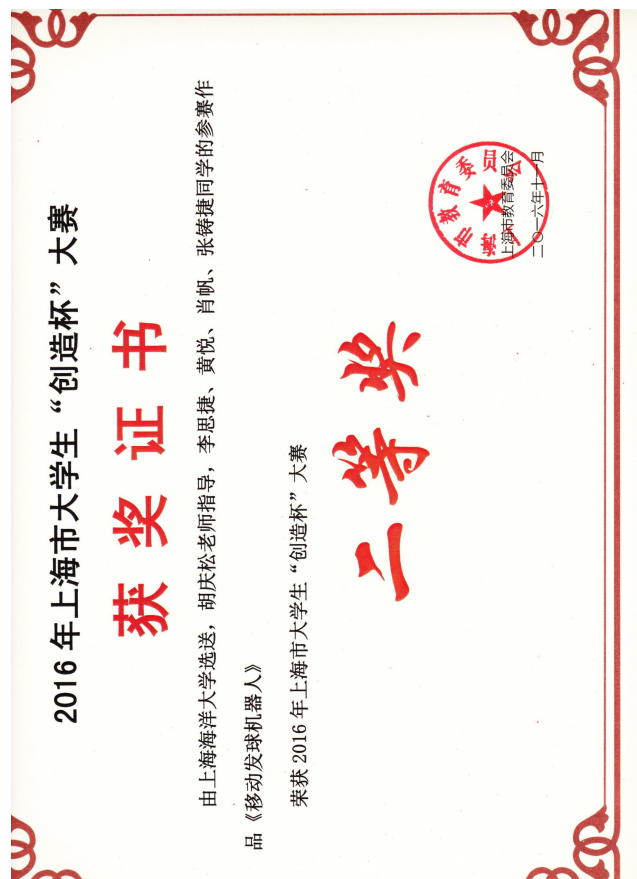 2016年上海市大学生“创造杯”大赛
获奖证书
由上海海洋大学选送，胡庆松老师指导，李思捷、黄悦、肖帆、张铸捷同学的参赛作
品《移动发球机器人》
荣获2016年上海市大学生“创造杯”大赛
二等奖
上海市教育委员会
上海市教育委员会
二〇一六年十一月